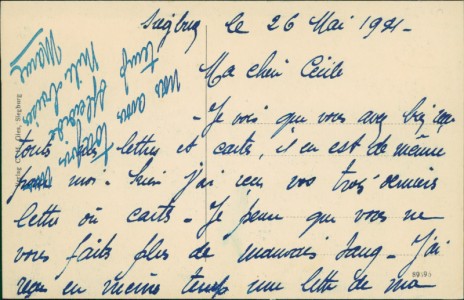 Siegburg le 26 Mai 1921-
Ma chère Cécile
- Je vois que vous avez bien reçu
toutes mes lettres et cartes, il en est de même
pour moi - hier j'ai reçu vos trois dernières
lettres ou cartes - Je pense que vous ne
vous faites plus de mauvais sang - J'ai
reçu en même temps une lettre de ma
nous avons
temps
splendide
Marius
Siegburg
89595